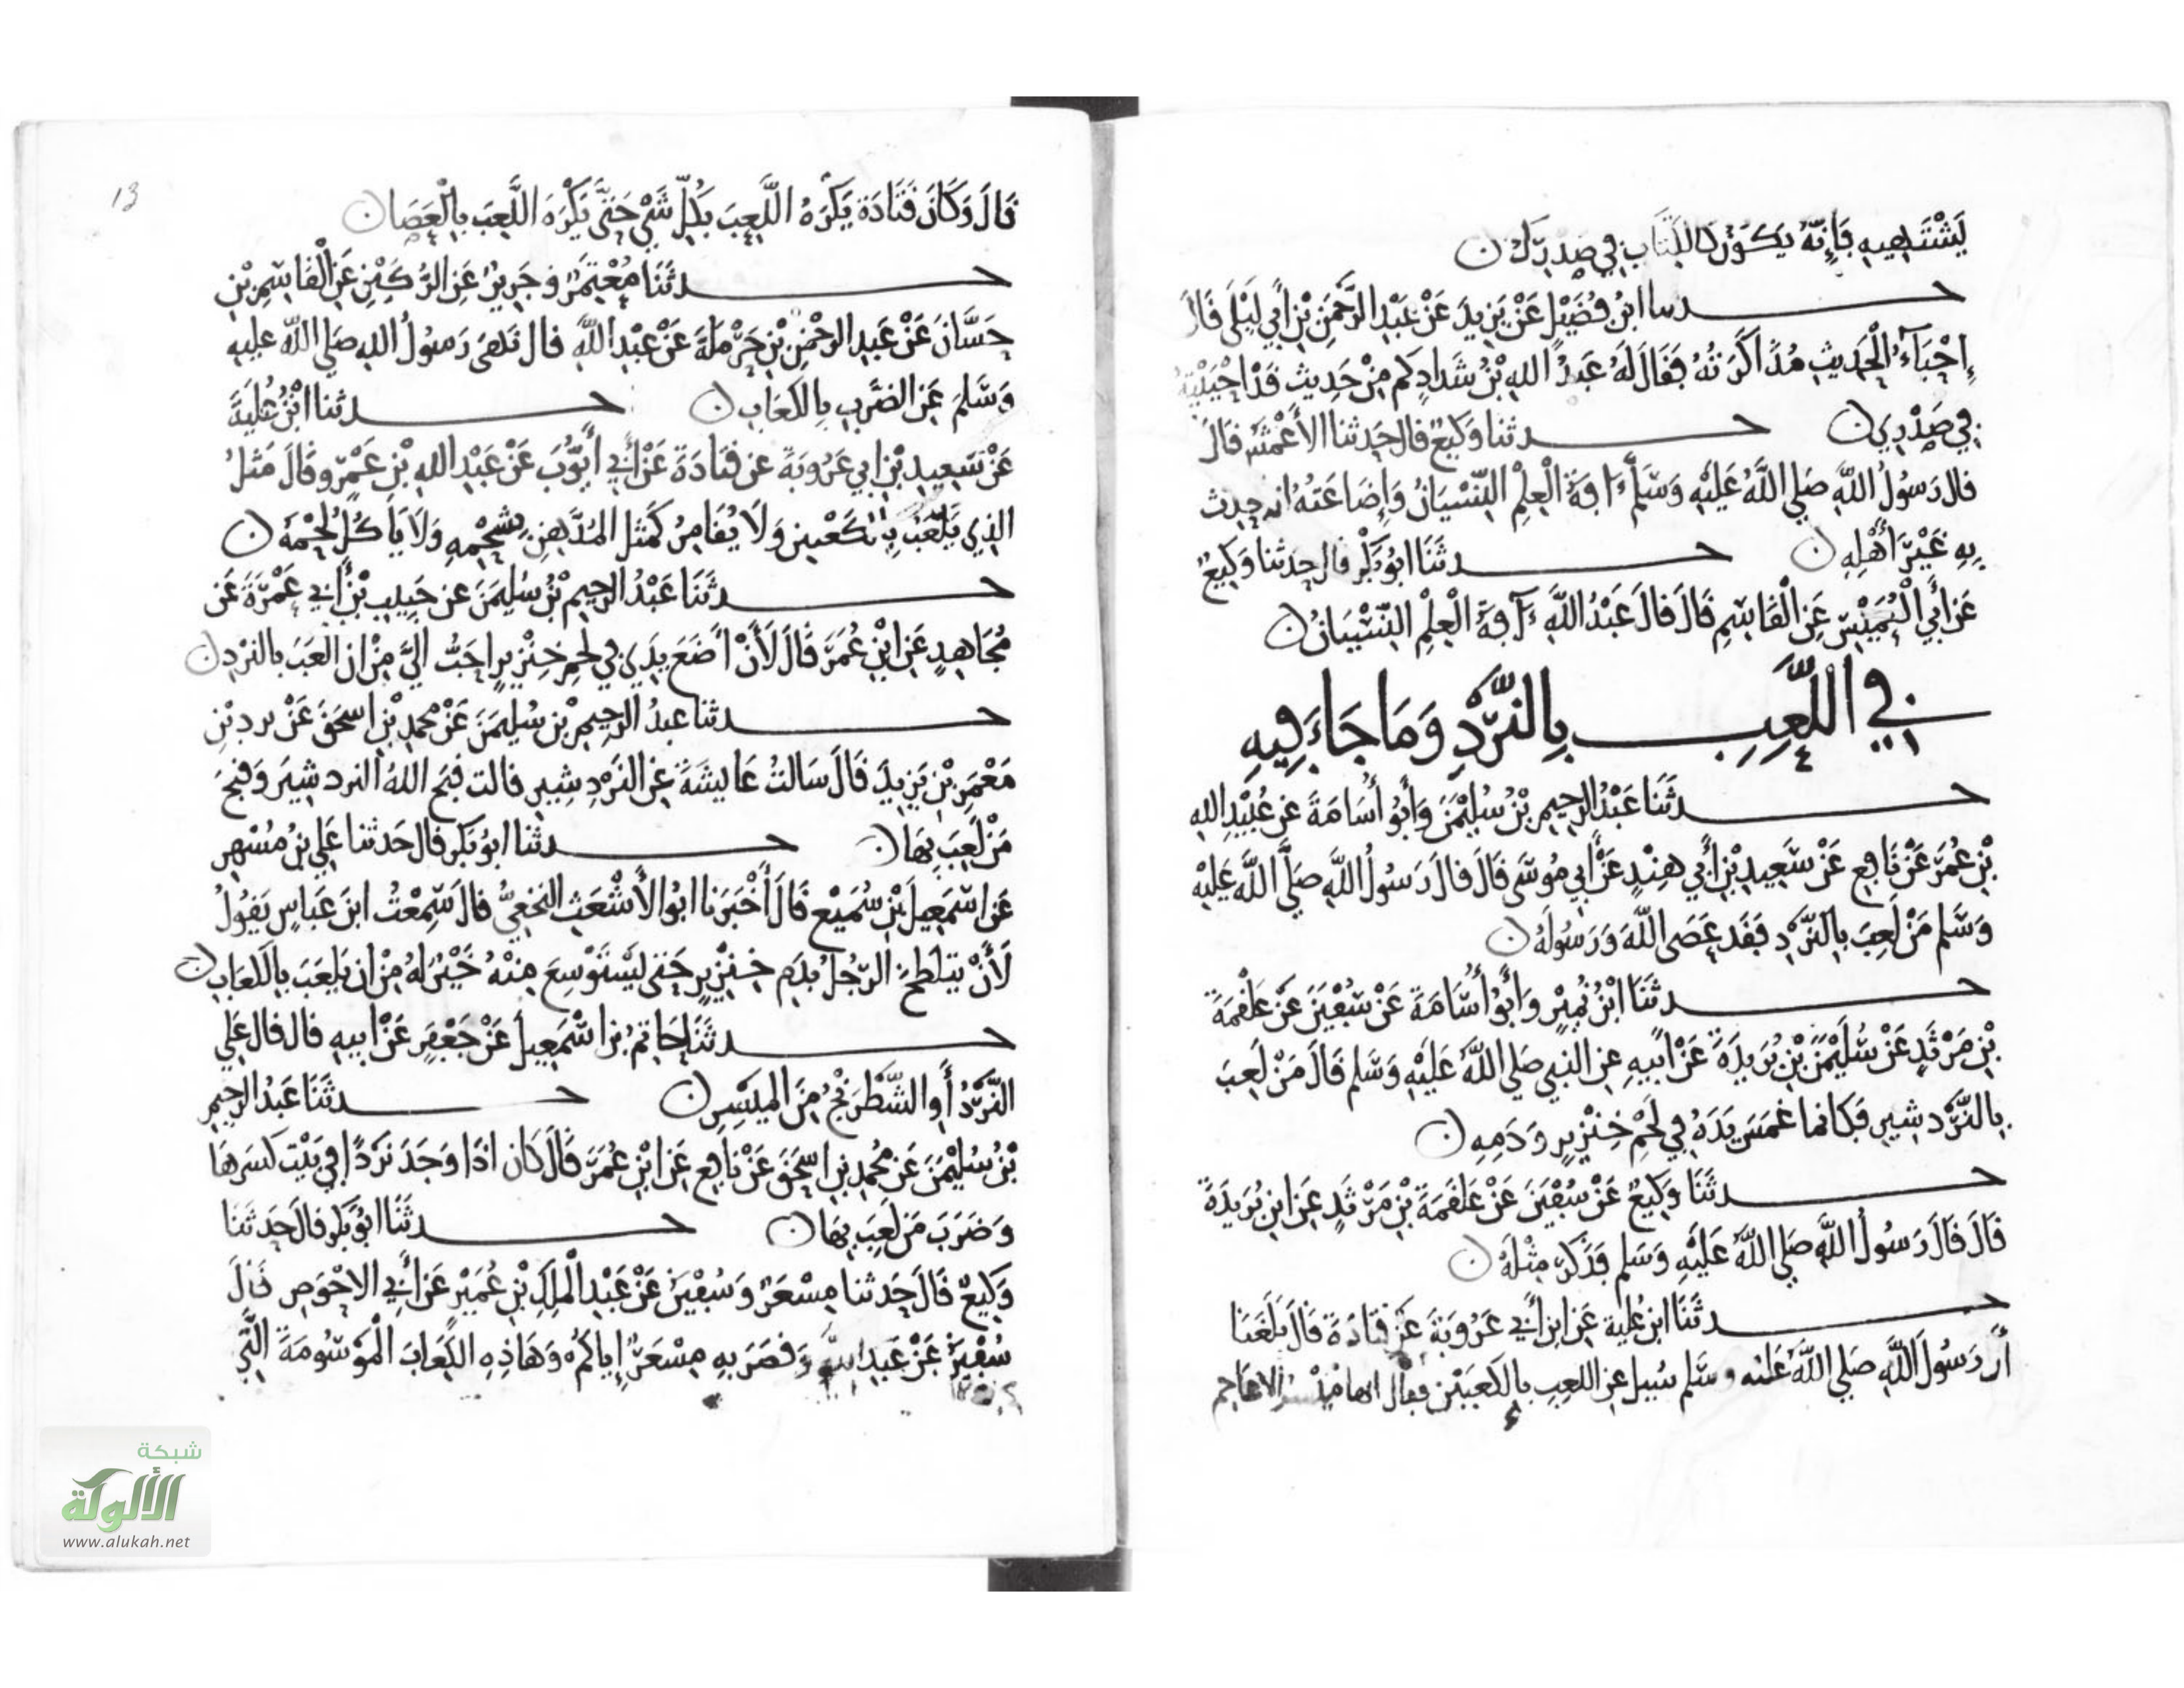 يَشْتَهِيهِ فَإِنَّهُ يَكُونُ كَالْكِتَابِ فِي صَدْرِكَ ن
حدثنا ابْنُ فُضَيْلٍ عَنْ يَزِيدَ عَنْ عَبْدِ الرَّحْمَنِ بْنِ أَبِي لَيْلَى قَالَ
إِحْيَاءُ الْحَدِيثِ مُذَاكَرَتُهُ فَقَالَ لَهُ عَبْدُ اللهِ بْنُ شَدَادٍ كَمْ مِنْ حَدِيثٍ قَدْ احْيَيْتَهُ
فِي صَدْرِي ن حدثنا وَكِيعٌ قال حَدثنا الأَعْمَشُ قَالَ
قال رَسُولُ اللَّهِ صَلَى اللَّهُ عَلَيْهِ وَسَلَّمَ ءَافَةُ الْعِلْمِ النِّسْيَانُ وَإِضَاعَتُهُ ان تحدث
بِهِ غَيْرَ أَهْلِهِ ن حدثَنَا ابُو بَكْرٍ قال حدثنا وَكِيعٌ
عَن أَبِي الْعُمَيْسِ عَنِ الْقَاسِمِ قَالَ قالَ عَبْدُ اللَّهِ ءَآفَةُ الْعِلْمِ النِّسْيَانُ ن
فِي اللَّعِبِ بِالنَّرْدِ وَمَا جَاءَ فِيهِ
حدثَنَا عَبْدُ الرَّحِيمِ بْنُ سُلَيْمَنَ وَأَبُو أُسَامَةَ عن عُبَيْدِ اللهِ
بْنِ عُمَرَ عَنْ نَافِعٍ عَنْ سَعِيدِ بْنِ أَبِي هِنْدٍ عَنْ أَبِي مُوسَى قَالَ قالَ رَسُولُ اللَّهِ صَلَّى اللَّه عَلَيْهِ
وَسَّلم مَنْ لَعِبَ بِالنَّرْدِ فَقَد عَصَى اللَّهَ وَرَسُولَهُ ن
حدثَنَا ابْنُ نُمَيْرٍ وَأَبُو أُسَامَةَ عَنْ سُفْيَنَ عَنْ عَلْقَمَةَ
بْنِ مَرْثَدٍ عَنْ سُلَيْمَنَ بْنِ بُرَيْدَةَ عَنْ ابِيهِ عن النبي صَلى اللَّهُ عَلَيْهِ وَسَلم قَالَ مَنْ لَعِبَ
بِالنَّرْد شِيرِ فَكانما غَمَسَ يَدَهُ فِي لَحْمِ خِنْزِيرٍ وَدَمِهِ ن
حدثَنَا وَكِيعٌ عَنْ سُفْيَنَ عَنْ عَلقَمَةَ بْنِ مَرْثَدٍ عَنِ ابنِ بُرَيْدَةَ
قَالَ قَالَ رَسُولُ اللَّهِ صَلى اللَّهُ عَلَيْهِ وَسَلم فَذَكَرَ مِثْلَهُ ن
حدثَنَا ابن عُلَية عَنِ ابنِ أَبِي عَرُوبَةَ عَنْ قَتَادَةَ قَالَ بَلَغَنَا
أَن رَسُولَ اللَّهِ صَلى اللَّهُ عَليه وسَلم سُيِل عن اللعِبِ بِالكَعْبَيْنِ فقال انها مَيْسر الاعَاجِم
13
قَالَ وَكَانَ قَتَادَة يَكْرَهُ اللَّعِبَ بِكُلِّ شَيْ حَتَّى يَكْرَهَ اللَّعِبَ بِالْعَصَا ن
حدثَنَا مُعْتَمِرٌ وَجَرِيرٌ عَنِ الرُّكَيْنِ عَنِ الْقَاسِمِ بْنِ
حَسَّانَ عَنْ عَبدِ الرحْمنِ بْنِ حَرْمَلَةَ عَنْ عَبْدِ اللَّهِ قال نَهَى رَسُولُ اللهِ صَلى اللَّه عليهِ
وَسَّلمَ عَنِ الضَّرْبِ بِالكعَابِ ن حدثنا ابْنُ عُلَيَةَ
عَنْ سَعِيدِ بْنِ ابِي عَرُوبَةَ عن قتادَةَ عَنْ أَبِي أَيُّوبَ عَنْ عَبْدِ اللهِ بْنِ عَمْرٍو قَالَ مَثَلُ
الذِي يَلْعَبُ بِالكَعْبَينِ وَلَا يُقَامِرُ كَمَثل المُدَّهِنِ بِشَحْمِهِ وَلَا يَاكُلُ لَحْمَهُ ن
حدثَنَا عَبْدُ الرحِيمِ بْنُ سُلَيمَنَ عن حَبِيبِ بْنِ أَبِي عَمْرَةَ عَن
مُجَاهِدٍ عَنِ ابْنِ عُمَرَ قَالَ لَأَنْ أَضَعَ يَدِي فِي لَحمِ خِنْزِيرٍ احَبُّ اليَّ مِنْ ان العَبَ بالنرْدِ ن
حدثنا عبدُ الرحِيمِ بْن سُليمَنَ عَنْ مُحمدِ بْنِ اسحَقَ عَنْ برد بْنِ
مَعْمَرِ بْنِ يَزِيدَ قَالَ سَالتُ عَايشَةَ عن النَرْدِ شِيرِ قالت قبحَ اللهُ النرد شِيرَ وَقبحَ
مَنْ لَعِبَ بِهَا ن حدثنا ابُو بَكرٍ قال حَدثنا عَلِي بْنُ مُسْهِرٍ
عَن اسْمَعِيلَ بْنِ سُمَيْعٍ قَالَ أَخْبَرَنا ابُو الأَشْعَثِ النخَعِيُّ قالَ سَمِعْتُ ابنَ عَباسٍ يَقُولُ
لَأَنْ يَتَلطَخَ الرّجُلُ بِدَمِ خِنزِيرٍ حَتى يَسْتَوْسِعَ مِنْهُ خَيْرٌ لَهُ مِنْ ان يَلعَبَ بِالكعَابِ ن
حدثَنَا حَاتِمُ بن اسْمَعِيلَ عَنْ جَعْفَرٍ عَنْ ابِيهِ قال قال عَلِي
النَّرْدُ أَوِ الشَّطْرَنْجُ مِنَ الْمَيْسِرِ ن حدثَنَا عَبدُ الرحِيمِ
بْنُ سُلَيْمَنَ عَن مُحمدِ بنِ اسحَقَ عَنْ نَافِعٍ عَنِ ابْنِ عُمَرَ قَالَ كَان اذَا وَجَدَ نَرْدًا فِي بَيْتٍ كسَرَهَا
وَضَرَبَ مَن لَعِبَ بِهَا ن حدثَنَا ابُو بَكْرٍ قالَ حَدثَنَا
وَكِيعٌ قَالَ حَدثنا مِسْعَرٌ وَسُفْيَنُ عَنْ عَبْدِ الْمَلِكِ بْنِ عُمَيْرٍ عَن أَبِي الاحْوَصِ قَالَ
سُفْيَنُ عَنْ عَبدِ اللهِ وَقصَرَ بهِ مِسْعَرٌ إِياكُمْ وَهَاذِهِ الكِعَابَ الْمَوْسُومَةَ التِي
شبكة
الألوكة
www.alukah.net